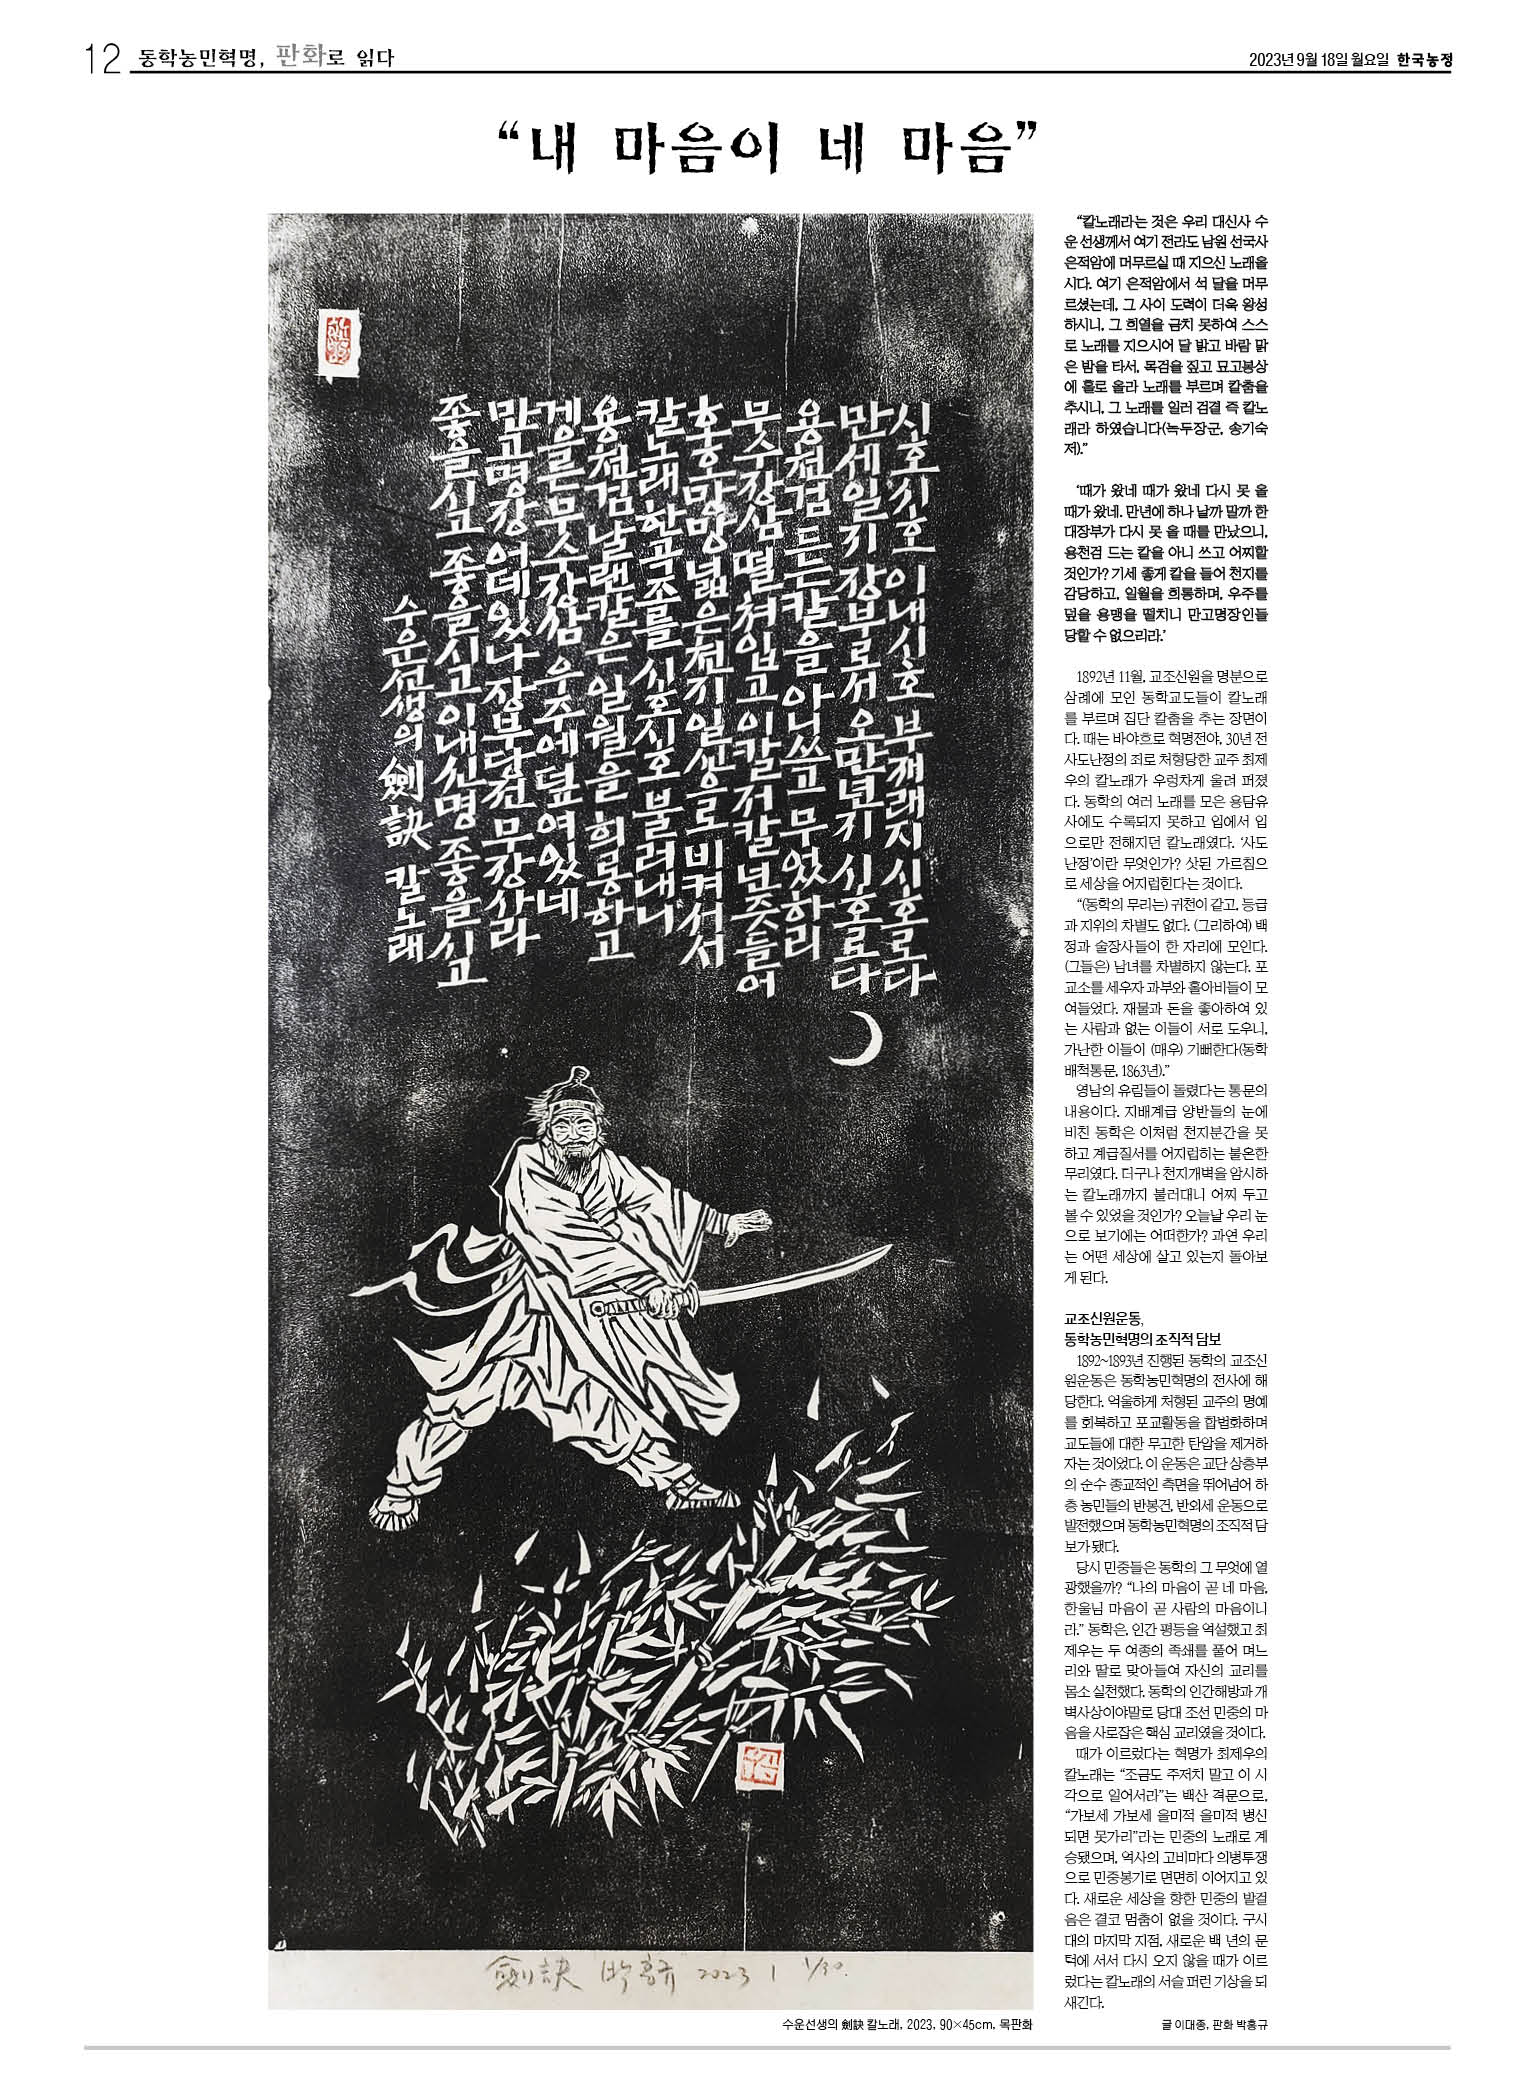 12 동학농민혁명, 판화로 읽다
2023년 9월 18일 월요일 한국농정
“내 마음이 네 마음”
시호시호 이내시호 부재래지 시호로다
만세일지 장부로서 오만년지 시호로다
용천검 드든칼을 아니쓰고 무었하리
무수장삼 떨쳐입고 이칼저칼 넌즛들어
호호망망 넓은천지 일신으로 비켜서서
칼노래 한곡조를 시호시호 불러내니
용천검 날랜칼은 일월을 희롱하고
게으른 무수장삼 우주에 덮여있네
만고명장 어데있나 장부당전 무장사라
좋을시고 좋을시고 이내신명 좋을시고
수운선생의 劍訣 칼노래
劍訣 2023 1 1/30.
수운선생의 劍訣 칼노래, 2023, 90×45cm, 목판화
“칼노래라는 것은 우리 대신사 수
운 선생께서 여기 전라도 남원 선국사
은적암에 머무르실 때 지으신 노래올
시다. 여기 은적암에서 석 달을 머무
르셨는데, 그 사이 도력이 더욱 왕성
하시니, 그 희열을 금치 못하여 스스
로 노래를 지으시어 달 밝고 바람 맑
은 밤을 타서, 목검을 짚고 묘고봉상
에 홀로 올라 노래를 부르며 칼춤을
추시니, 그 노래를 일러 검결 즉 칼노
래라 하였습니다(녹두장군, 송기숙
저).”
‘때가 왔네 때가 왔네 다시 못 올
때가 왔네. 만년에 하나 날까 말까 한
대장부가 다시 못 올 때를 만났으니,
용천검 드는 칼을 아니 쓰고 어찌할
것인가? 기세 좋게 칼을 들어 천지를
감당하고, 일월을 희롱하며, 우주를
덮을 용맹을 떨치니 만고명장인들
당할 수 없으리라.’
1892년 11월, 교조신원을 명분으로
삼례에 모인 동학교도들이 칼노래
를 부르며 집단 칼춤을 추는 장면이
다. 때는 바야흐로 혁명전야, 30년 전
사도난정의 죄로 처형당한 교주 최제
우의 칼노래가 우렁차게 울려 퍼졌
다. 동학의 여러 노래를 모은 용담유
사에도 수록되지 못하고 입에서 입
으로만 전해지던 칼노래였다. ‘사도
난정’이란 무엇인가? 삿된 가르침으
로 세상을 어지럽힌다는 것이다.
“(동학의 무리는) 귀천이 같고, 등급
과 지위의 차별도 없다. (그리하여) 백
정과 술장사들이 한 자리에 모인다.
(그들은) 남녀를 차별하지 않는다. 포
교소를 세우자 과부와 홀아비들이 모
여들었다. 재물과 돈을 좋아하여 있
는 사람과 없는 이들이 서로 도우니,
가난한 이들이 (매우) 기뻐한다(동학
배척통문, 1863년).”
영남의 유림들이 돌렸다는 통문의
내용이다. 지배계급 양반들의 눈에
비친 동학은 이처럼 천지분간을 못
하고 계급질서를 어지럽히는 불온한
무리였다. 더구나 천지개벽을 암시하
는 칼노래까지 불러대니 어찌 두고
볼 수 있었을 것인가? 오늘날 우리 눈
으로 보기에는 어떠한가? 과연 우리
는 어떤 세상에 살고 있는지 돌아보
게 된다.
교조신원운동,
동학농민혁명의 조직적 담보
1892~1893년 진행된 동학의 교조신
원운동은 동학농민혁명의 전사에 해
당한다. 억울하게 처형된 교주의 명예
를 회복하고 포교활동을 합법화하며
교도들에 대한 무고한 탄압을 제거하
자는 것이었다. 이 운동은 교단 상층부
의 순수 종교적인 측면을 뛰어넘어 하
층 농민들의 반봉건, 반외세 운동으로
발전했으며 동학농민혁명의 조직적 담
보가 됐다.
당시 민중들은 동학의 그 무엇에 열
광했을까? “나의 마음이 곧 네 마음,
한울님 마음이 곧 사람의 마음이니
라.” 동학은, 인간 평등을 역설했고 최
제우는 두 여종의 족쇄를 풀어 며느
리와 딸로 맞아들여 자신의 교리를
몸소 실천했다. 동학의 인간해방과 개
벽사상이야말로 당대 조선 민중의 마
음을 사로잡은 핵심 교리였을 것이다.
때가 이르렀다는 혁명가 최제우의
칼노래는 “조금도 주저치 말고 이 시
각으로 일어서라”는 백산 격문으로,
“가보세 가보세 을미적 을미적 병신
되면 못가리”라는 민중의 노래로 계
승됐으며, 역사의 고비마다 의병투쟁
으로 민중봉기로 면면히 이어지고 있
다. 새로운 세상을 향한 민중의 발걸
음은 결코 멈춤이 없을 것이다. 구시
대의 마지막 지점, 새로운 백 년의 문
턱에 서서 다시 오지 않을 때가 이르
렀다는 칼노래의 서슬 퍼런 기상을 되
새긴다.
글 이대종, 판화 박홍규